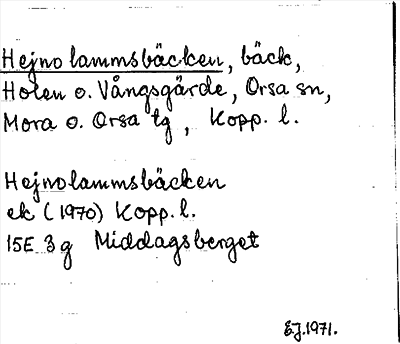 Hejnolammsbäcken, bäck,
Holen o. Vångsgärde, Orsa sn,
Mora o. Orsa tg, Kopp. l.
Hejnolammsbäcken
ek (1970) Kopp. l.
15E 3g Middagsberget
EJ. 1971.